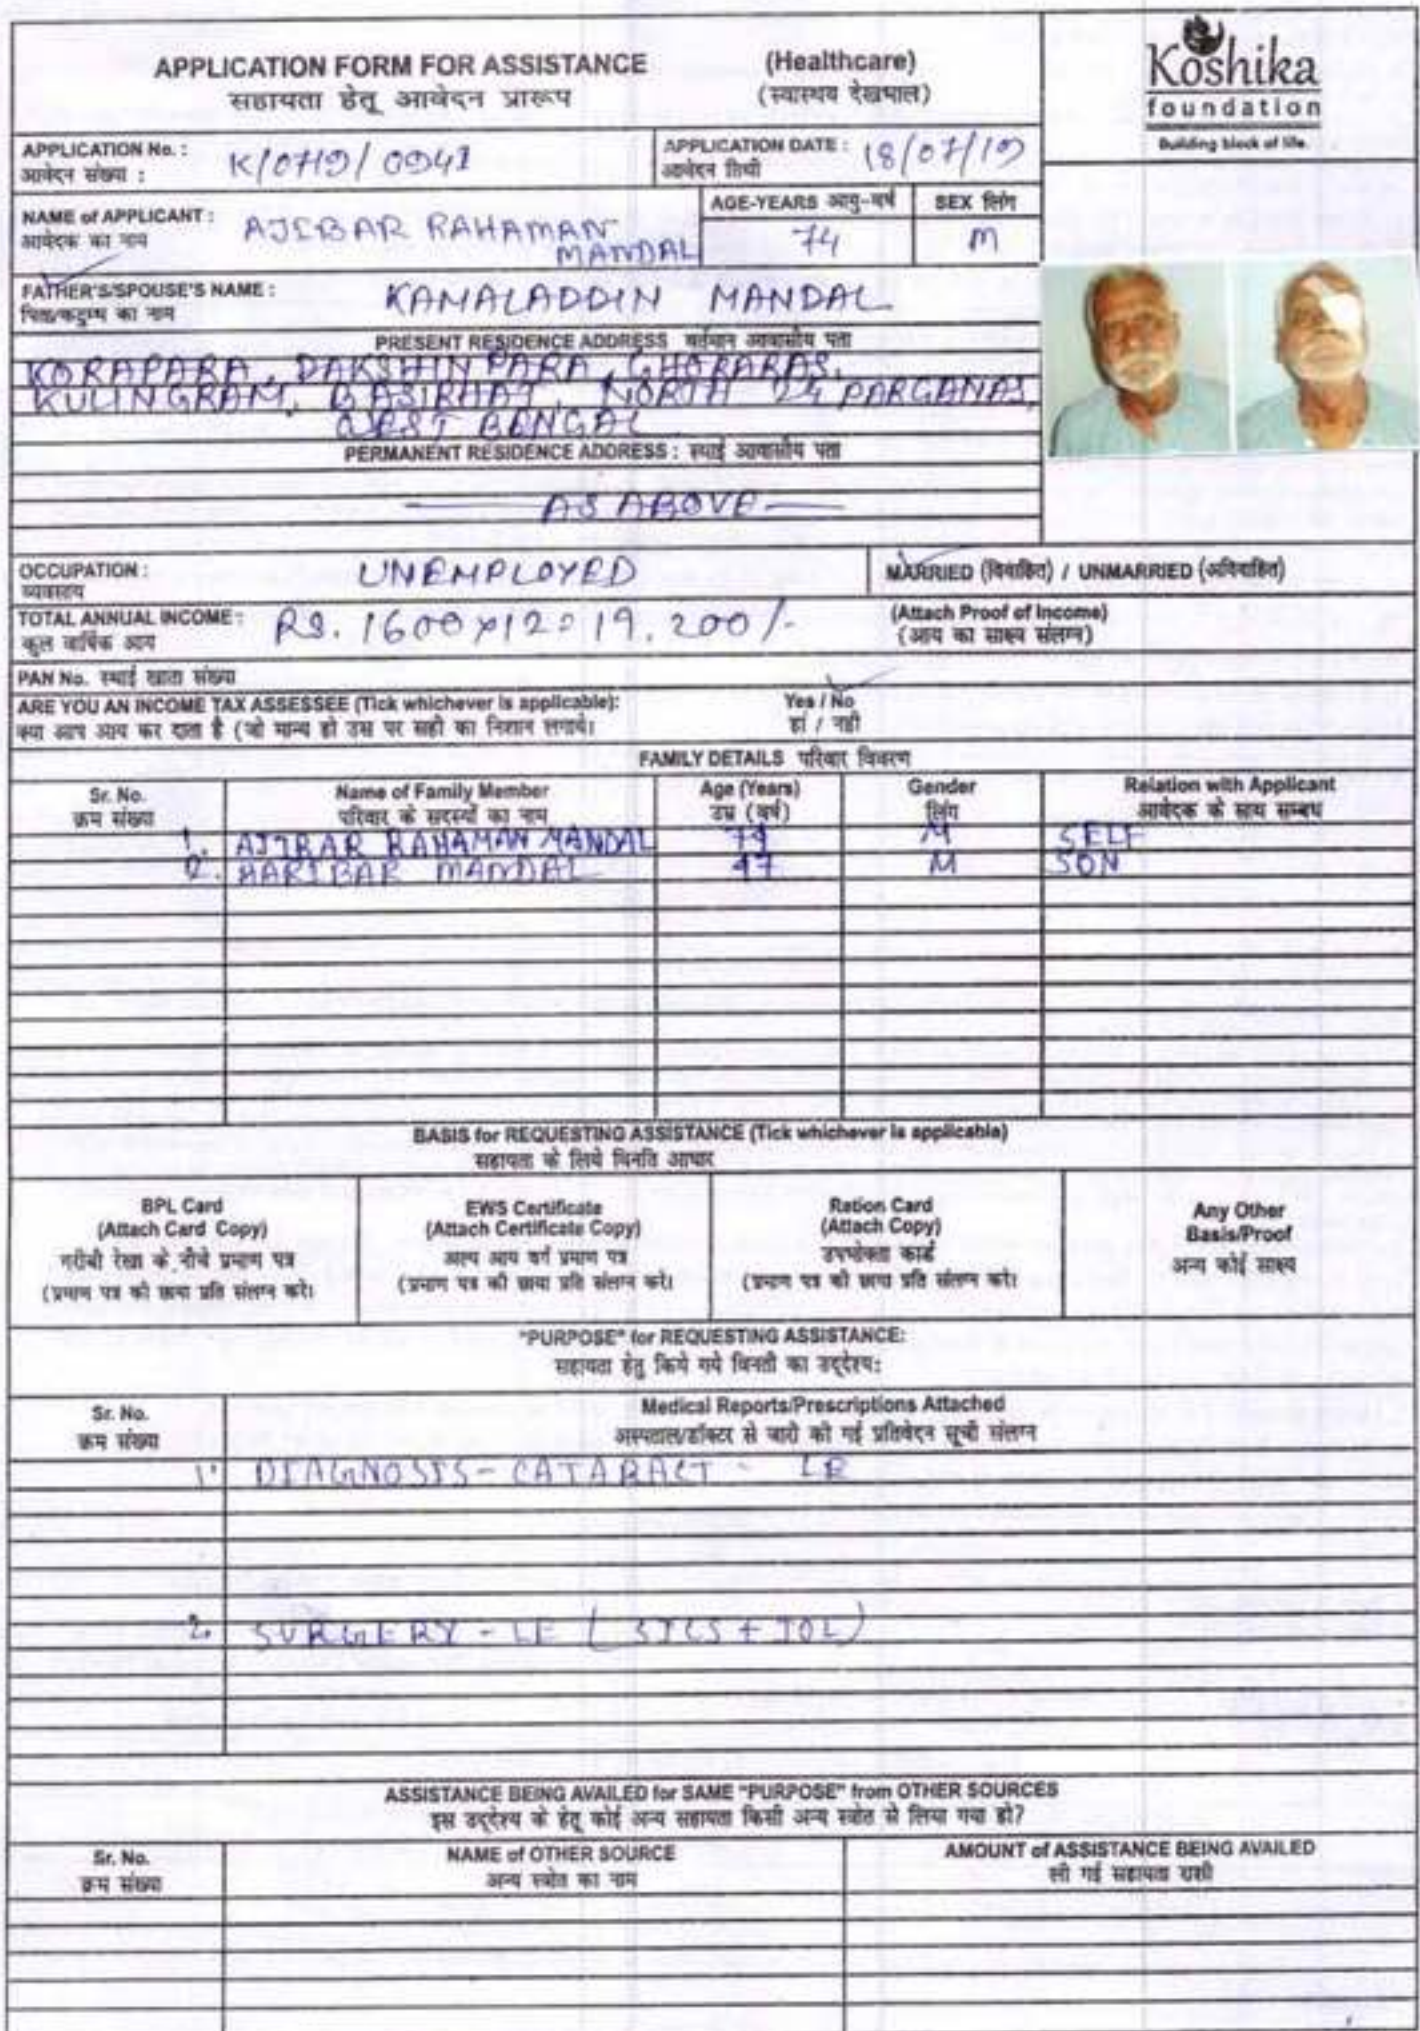 APPLICATION FORM FOR ASSISTANCE (Healthcare)
सहायता हेतू आवेदन प्रारूप (स्वास्थय देखभाल)
Koshika
foundation
Building block of life.
APPLICATION No. : K/0719/0941
आवेदन संख्या :
APPLICATION DATE : 18/07/19
आवेदन तिथी
NAME of APPLICANT : AJIBAR RAHAMAN MANDAL
आवेदक का नाम
AGE-YEARS आयु-वर्ष 74
SEX लिंग M
FATHER'S/SPOUSE'S NAME : KAMALADDIN MANDAL
पिता/कटुम्ब का नाम
PRESENT RESIDENCE ADDRESS वर्तमान आवासीय पता
KORAPARA, DAKSHIN PARA, GHORARAS,
KULINGRAM, BASIRHAT, NORTH 24 PARGANAS,
WEST BENGAL
PERMANENT RESIDENCE ADDRESS : स्थाई आवासीय पता
AS ABOVE
OCCUPATION : UNEMPLOYED
व्यवसाय
MARRIED (विवाहित) / UNMARRIED (अविवाहित)
TOTAL ANNUAL INCOME : RS. 1600×12=19,200/-
कुल वार्षिक आय
(Attach Proof of Income)
(आय का साक्ष्य संलग्न)
PAN No. स्थाई खाता संख्या
ARE YOU AN INCOME TAX ASSESSEE (Tick whichever is applicable): Yes / No
क्या आप आय कर दाता है (जो मान्य हो उस पर सही का निशान लगाये। हां / नही
FAMILY DETAILS परिवार विवरण
Sr. No. Name of Family Member Age (Years) Gender Relation with Applicant
क्रम संख्या परिवार के सदस्यों का नाम उम्र (वर्ष) लिंग आवेदक के साथ सम्बध
1. AJIBAR RAHAMAN MANDAL 74 M SELF
2. HARIBAR MANDAL 47 M SON
BASIS for REQUESTING ASSISTANCE (Tick whichever is applicable)
सहायता के लिये विनति आधार
BPL Card
(Attach Card Copy)
गरीबी रेखा के नीचे प्रमाण पत्र
(प्रमाण पत्र की छाया प्रति संलग्न करे।
EWS Certificate
(Attach Certificate Copy)
अल्प आय वर्ग प्रमाण पत्र
(प्रमाण पत्र की छाया प्रति संलग्न करे।
Ration Card
(Attach Copy)
उपभोक्ता कार्ड
(प्रमाण पत्र की छाया प्रति संलग्न करे।
Any Other
Basis/Proof
अन्य कोई साक्ष्य
"PURPOSE" for REQUESTING ASSISTANCE:
सहायता हेतु किये गये विनती का उद्देश्य:
Sr. No. Medical Reports/Prescriptions Attached
क्रम संख्या अस्पताल/डॉक्टर से जारी की गई प्रतिवेदन सूची संलग्न
1. DIAGNOSIS - CATARACT - LE
2. SURGERY - LE (SICS + IOL)
ASSISTANCE BEING AVAILED for SAME "PURPOSE" from OTHER SOURCES
इस उद्देश्य के हेतू कोई अन्य सहायता किसी अन्य स्त्रोत से लिया गया हो?
Sr. No. NAME of OTHER SOURCE AMOUNT of ASSISTANCE BEING AVAILED
क्रम संख्या अन्य स्त्रोत का नाम ली गई सहायता राशी